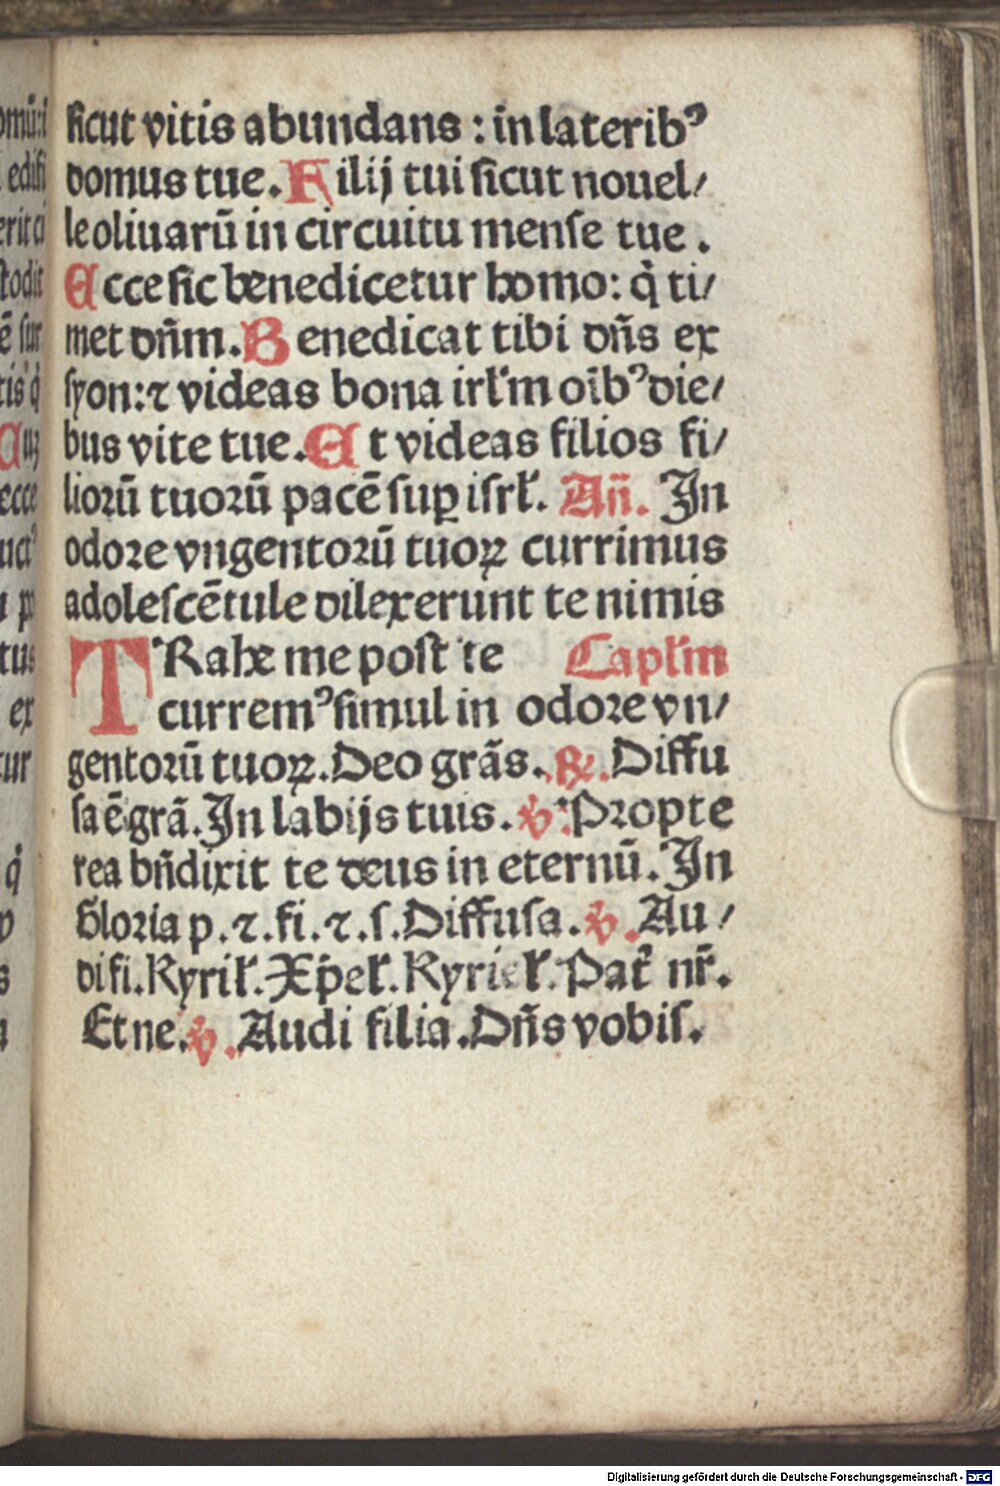 ſicut vitis abundans : in lateribꝰ
domus tue. Filij tui ſicut nouel/
le oliuarū in circuitu menſe tue .
Ecce ſic benedicetur homo: q̇ ti/
met dn̄m. Benedicat tibi dn̄s ex
ſyon: ⁊ videas bona irl̓m oībꝰ die/
bus vite tue. Et videas filios fi/
lioꝛū tuoꝛū pacē ſuꝑ iſrł. An̄. In
odoꝛe vngentoꝛū tuoꝝ currimus
adoleſcētule dilexerunt te nimis
TRahe me poſt te Capl̓m
curremꝰ ſimul in odoꝛe vn/
gentoꝛū tuoꝝ. Deo grās. ℟. Diffu
ſa ē grā. In labijs tuis. ℣. Pꝛopte
rea bn̄dixit te deus in eternū. In
Gloꝛia p . ⁊ . fi . ⁊ . ſ. Diffuſa. ℣. Au/
di fi. Kyrił. Xp̄eł. Kyrieł. Pat̓ nr̄.
Et ne. ℣. Audi filia. Dn̄s vobiſ.
omū:i
edifi
erit ci
todit
ē ſur
tis q̇
ecce
uctꝰ
tus
ex
tur
q̇
Digitalisierung gefördert durch die Deutsche Forschungsgemeinschaft - DFG